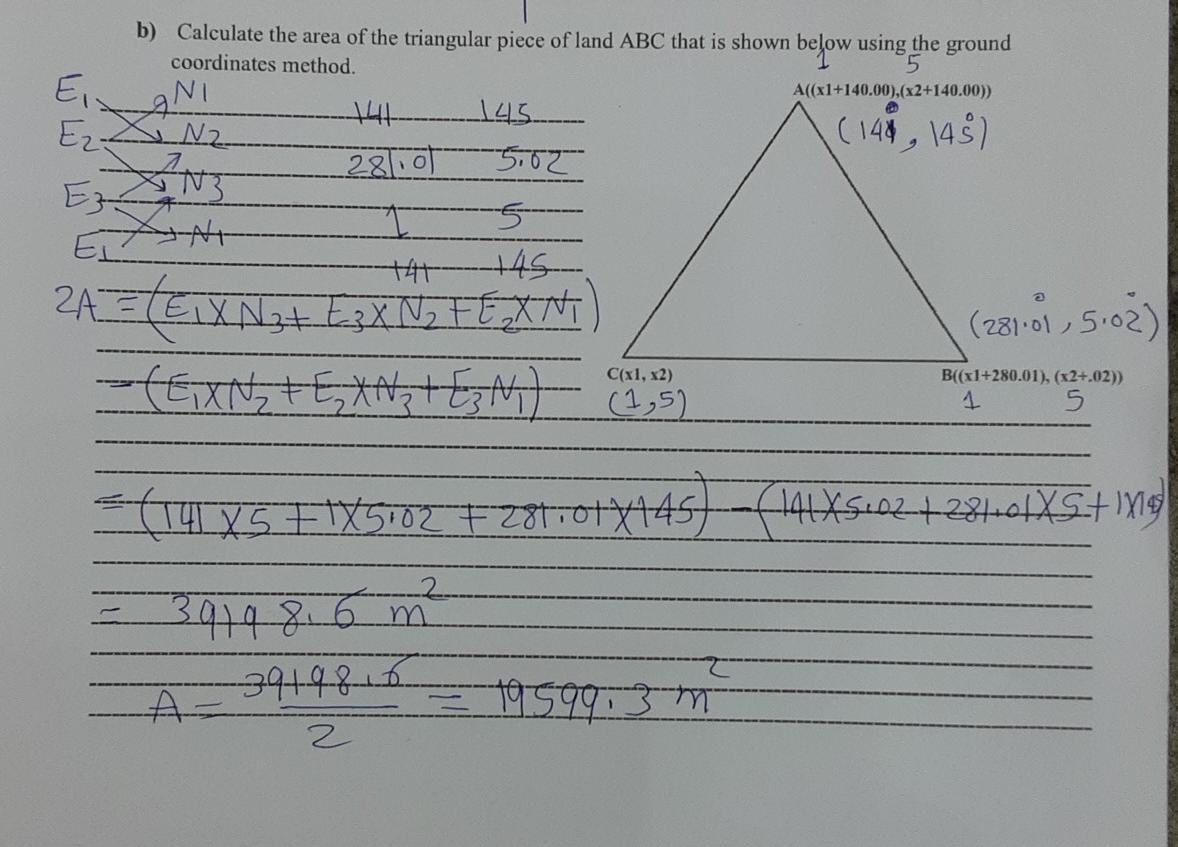 b) Calculate the area of the triangular piece of land ABC that is shown below using the ground
coordinates method.
1 5
A((x1+140.00),(x2+140.00))
E1 N1 141 145
(141, 145)
E2 N2 281.01 5.02
E3 N3 1 5
E1 N1 141 145
2A = (E1XN3 + E3XN2 + E2XN1)
(281.01, 5.02)
C(x1, x2) B((x1+280.01), (x2+.02))
- (E1XN2 + E2XN3 + E3N1)
(1,5) 1 5
= (141X5 + 1X5.02 + 281.01X145) - (141X5.02 + 281.01X5 + 1X
= 39198.6 m²
A = 39198.6 / 2 = 19599.3 m²